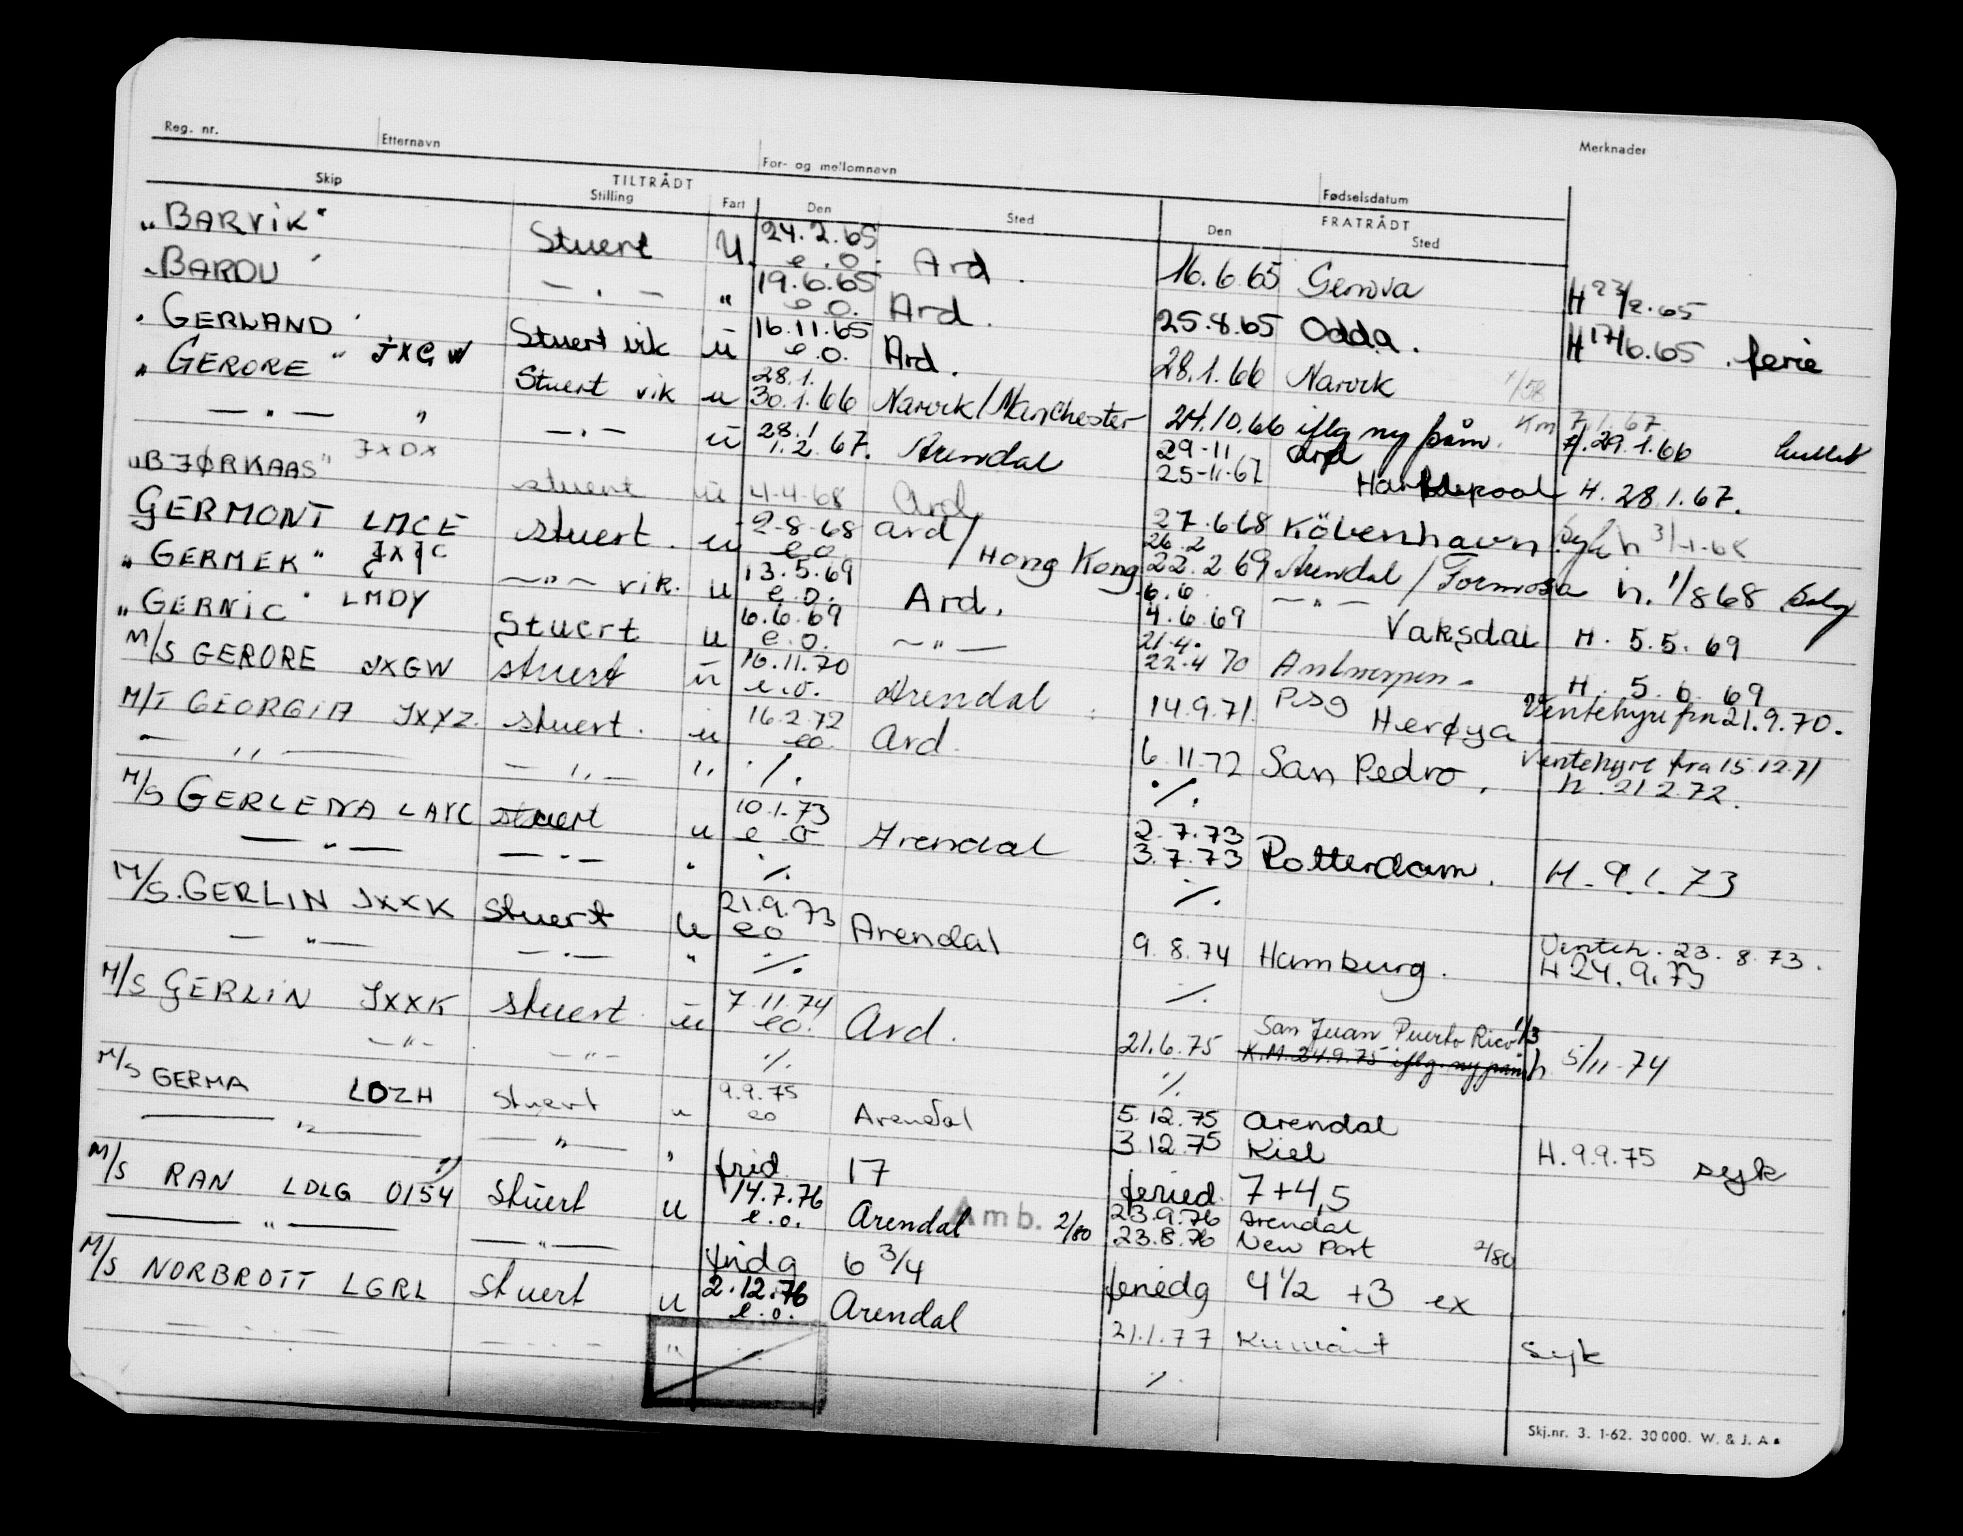 Reg. nr. Etternavn For- og mellomnavn Fødselsdatum Merknader
Skip TILTRÅDT Stilling Fart Den Sted FRATRÅDT Den Sted
"BARVIK" Stuert U. 24.2.65 e.o. Ard. 16.6.65 Genova H 23/2.65
"BARDU" — " — " 19.6.65 e.o. Ard. 25.8.65 Odda. H 17/6.65 ferie
"GERLAND" Stuert vik u 16.11.65 e.o. Ard. 28.1.66 Narvik 1/58
"GERORE" JXGW Stuert vik u 28.1. 30.1.66 Narvik/Manchester 24.10.66 iflg ny påm. Km 7.1.67. 29.1.66
— " — " — " — u 28.1 1.2.67. Arendal 29-11 25-11-67 Ard Hartlepool H. 28.1.67.
"BJØRKAAS" JXDX stuert u 4.4.68 Ard 27.6.68 Köbenhavn. h 3/4-68
GERMONT LMCE stuert. u 2-8-68 e.o. Ard/Hong Kong 26.2 22.2 69 Arendal/Formosa h. 1/8 68
"GERMEK" — " — vik. u 13.5.69 e.o. Ard. 6.6. 4.6.69 — " — Vaksdal H. 5.5.69
"GERNIC" LMDY Stuert u 6.6.69 e.o. — " — 21.4. 22.4 70 Antwerpen. H. 5.6.69
M/S GERORE JXGW stuert u 16.11.70 e.o. Arendal 14.9.71. Herøya Ventehyre fra 21.9.70.
M/T GEORGIA JXYZ. stuert. u 16.2.72 eo. Ard. 6.11.72 San Pedro. Ventehyre fra 15.12.71
— " — — " — " ./. ./. h. 21.2.72.
M/S GERLENA LAYC stuert u 10.1.73 e.o Arendal 2.7.73 3.7.73 Rotterdam. H. 9.1.73
— " — — " — " ./. ./.
M/S. GERLIN JXXK Stuert u 21.9.73 eo Arendal 9.8.74 Hamburg. Venteh. 23.8.73.
— " — — " — " ./. ./. H 24.9.73
M/S GERLIN JXXK stuert. u 7.11.74 eo. Ard. 21.6.75 San Juan Puerto Rico 1/3
— " — — " — ./. ./. K.M. 24.9.75 iflg. ny påm h 5/11-74
M/S GERMA LDZH stuert u 9.9.75 eo Arendal 5.12.75 Arendal
— " — — " — " 3.12.75 Kiel H. 9.9.75 syk
frid. 17 feried. 7+4,5
M/S RAN LDLG 0154 stuert u 14.7.76 e.o. Arendal Amb. 2/80 23.9.76 Arendal
— " — — " — 23.8.76 New Port 2/80
fridg 6 3/4 feriedg 4 1/2 +3 ex
M/S NORBROTT LGRL stuert u 2.12.76 e.o. Arendal 21.1.77 Kuwait syk
— " — — " — " ./.
Skj.nr. 3. 1-62. 30 000. W. & J. A.